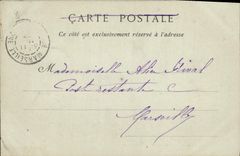 CARTE POSTALE
Ce côté est exclusivement réservé à l'adresse
MARSEILLE
Mademoiselle
Post restante
Marseille